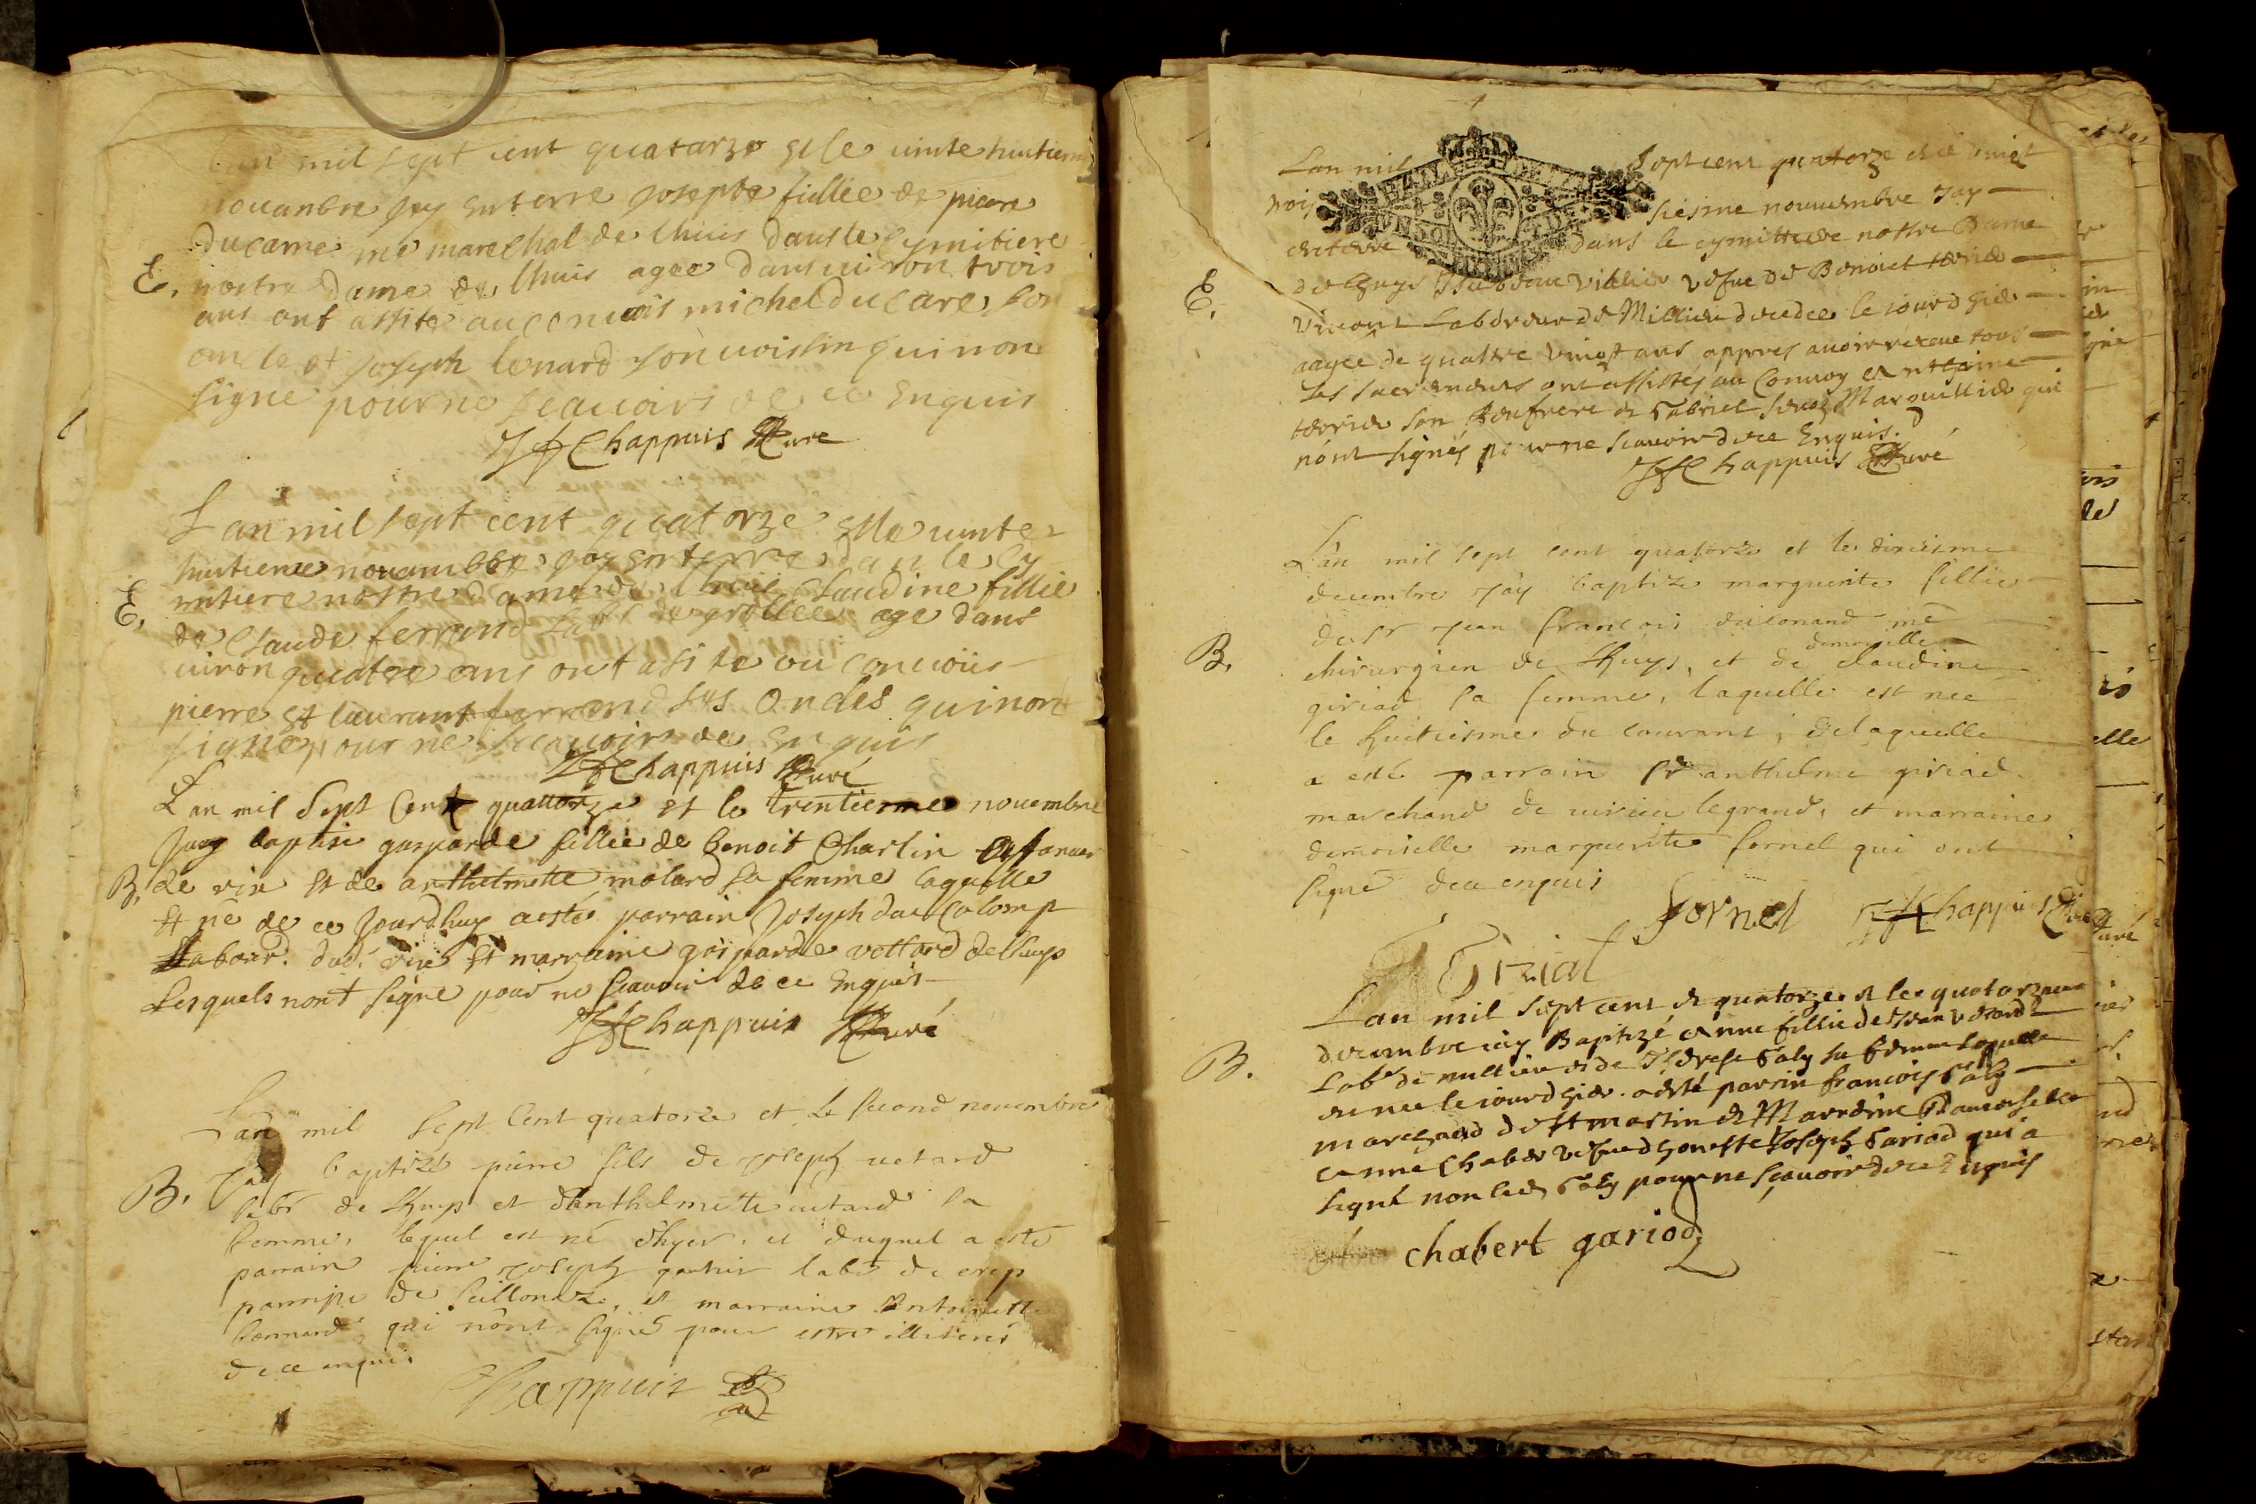 Lan mil sept cent quatorze et le vinte huitieme
nouanbre jey enterre josepte fillie de pierre
ducarre me marechal de lhuis dans le cymitiere
E. nostre dame de lhuis agee danuiron trois
ans ont assite au conuois michel ducare son
oncle et joseph lonard son uoissin qui non
signe pour ne scauoirs de ce enquis
Chappuis Curé
Lan mil sept cent quatorze et le uinte
huitieme nouambre jay enterre dan le cy
E. mitiere nostre dame de lhuis Claudine fillie
de Claude ferrand labr de grollee age dans
uiron quatre ans ont asiste au conuois
pierre et laurant ferrand ses oncles qui non
signe pour ne scauoir de ce enquis
Chappuis Curé
Lan mil sept Cent quattorze et le trentiesme nouembre
Jay baptisé gasparde fillie de benoit Charlin
B. de vire et de anthelmette molard sa femme laquelle
et né de ce jourdhuy a esté parrain Joseph du Colomp
labour. dud. vire et marraine gasparde vettard de lhuys
Lesquels nont signe pour ne scauoir de ce enquis
Chappuis Curé
Lan mil sept Cent quatorze et le second nouembre
B. Jay baptizé pierre fils de Joseph uetard
labr de Lhuys et danthelmette uetard sa
femme, lequel est né dhyer, et duquel a esté
parrain pierre Joseph labr de crep
parroisse de seillonaz, et marraine antoinette
bonnard qui nont signé pour estre illiterés
de ce enquis
Chappuis
Lan mil sept cent quatorze et le vingt
trois siesme nouuembre Jay
enterré dans le cymittiere nostre Dame
E. de Lhuys vefue de Benoict terrier
vivant Laboreur de Millieu decedee le iourdhier
aagee de quattre vingt ans appres auoir receue tous
les sacremens ont assistés au Conuoy anthoine
terrier son beaufrere et Gabriel Marguillier qui
nont signés pour ne scauoir de ce Enquis.
Chappuis Curé
Lan mil sept cent quatorze et le dixiesme
decembre Jay baptizé marguerite fillie
de sr Jean francois me
B. chirurgien de Lhuys, et de demoiselle claudine
giriad sa femme, laquelle est nee
le huitiesme du courant; de laquelle
a esté parrain sr anthelme giriad
marchand de uirieu legrand, et marraine
demoiselle marguerite fornel qui ont
signé de ce enquis
fornel Chappuis Curé
Lan mil sept cent et quatorze et le quatorzieme
decembre iay Baptizé anne fillie de Jean
B. Labr de millieu et de Therese Galy sa femme laquelle
est nee le iourdhier. a esté parrin francois Galy
marchand de St martin et Marreine Damoiselle
anne Chabert vefue dhoneste Joseph Gariod qui a
signé non led. Galy pour ne scauoir de ce Enquis
chabert gariod